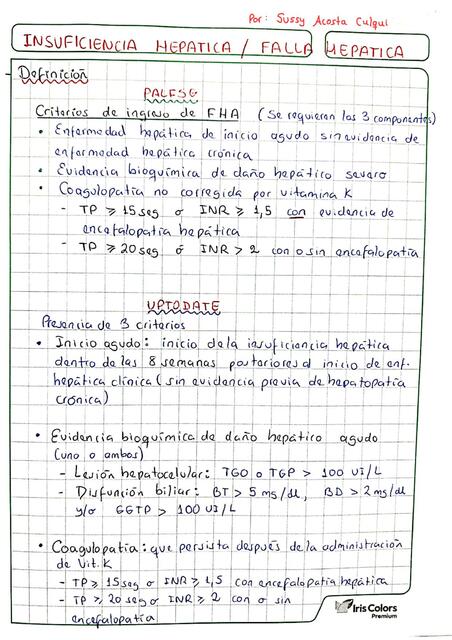 Por: Sussy Acosta Culqui
INSUFICIENCIA HEPATICA / FALLA HEPATICA
Definición
PALFSG
Criterios de ingreso de FHA (Se requieren los 3 componentes)
• Enfermedad hepática de inicio agudo sin evidencia de
enfermedad hepática crónica
• Evidencia bioquímica de daño hepático severo
• Coagulopatía no corregida por vitamina K
- TP ≥ 15 seg o INR ≥ 1,5 con evidencia de
encefalopatía hepática
- TP ≥ 20 seg o INR > 2 con o sin encefalopatía
UPTODATE
Presencia de 3 criterios
• Inicio agudo: inicio de la insuficiencia hepática
dentro de las 8 semanas posteriores al inicio de enf.
hepática clínica (sin evidencia previa de hepatopatía
crónica)
• Evidencia bioquímica de daño hepático agudo
(uno o ambos)
- Lesión hepatocelular: TGO o TGP > 100 UI/L
- Disfunción biliar: BT > 5 mg/dl, BD > 2 mg/dl
y/o GGTP > 100 UI/L
• Coagulopatía: que persista después de la administración
de Vit. K
- TP ≥ 15 seg o INR ≥ 1,5 con encefalopatía hepática
- TP ≥ 20 seg o INR ≥ 2 con o sin
encefalopatía
Iris Colors
Premium